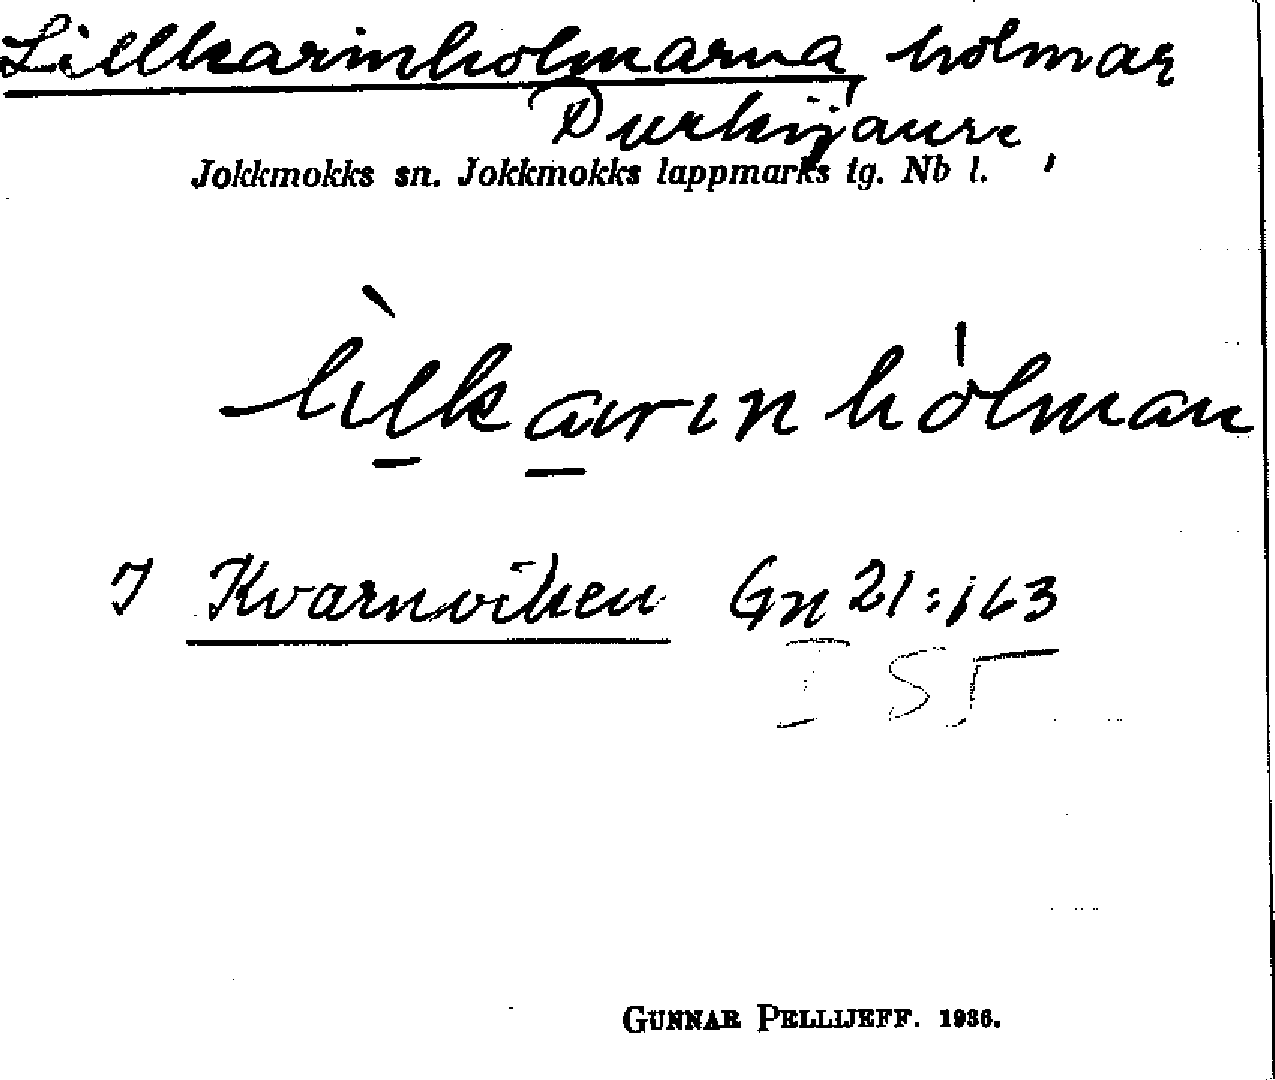 Lillkarinholmarna holmar
Purkijaure
Jokkmokks sn. Jokkmokks lappmarks tg. Nb l.
lìlkarinhólman
I Kvarnviken Gn 21:163
I S5
GUNNAR PELLIJEFF. 1936.